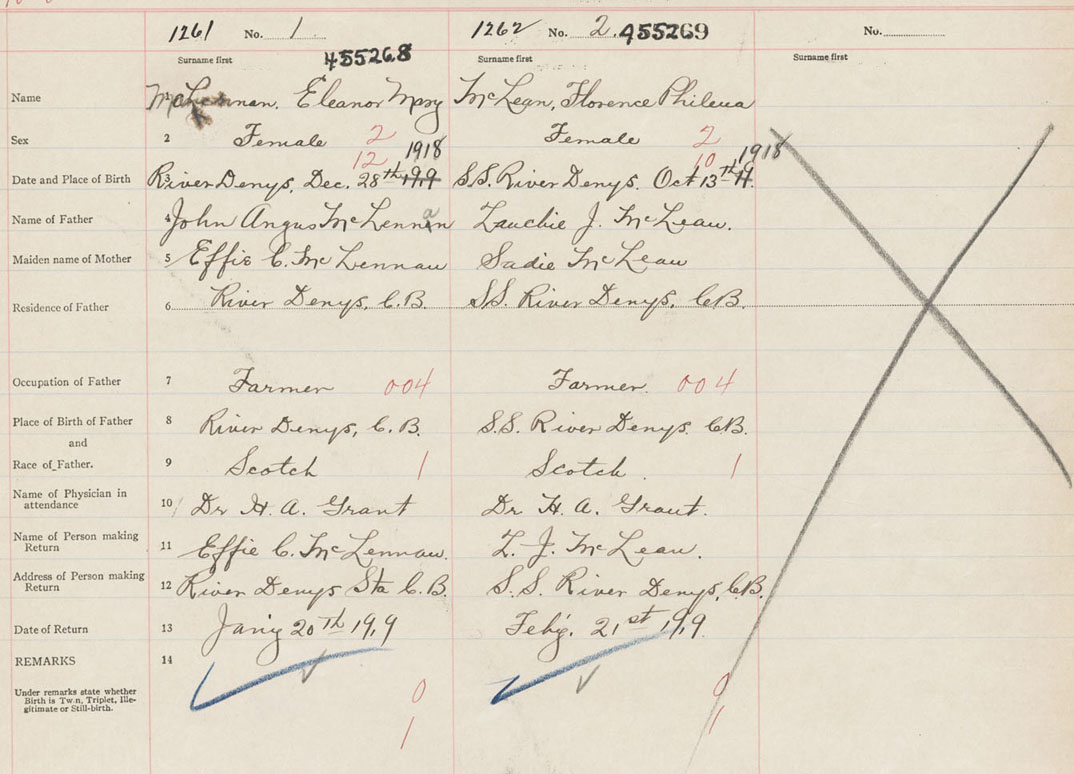 1261 No. 1 1262 No. 2. 455269 No.
Surname first 455268 Surname first Surname first
Name 1 McLennan, Eleanor Mary McLean, Florence Philena
Sex 2 Female 2 Female 2
12 1918 10 1918
Date and Place of Birth 3 River Denys, Dec. 28th 1919 S.S. River Denys. Oct 13th
Name of Father 4 John Angus McLennan Lauchie J. McLean.
Maiden name of Mother 5 Effie C. McLennan Sadie McLean
Residence of Father 6 River Denys, C.B. S.S. River Denys, C.B.
Occupation of Father 7 Farmer 004 Farmer. 004
Place of Birth of Father 8 River Denys, C.B. S.S. River Denys. C.B.
and
Race of Father. 9 Scotch 1 Scotch. 1
Name of Physician in
attendance 10 Dr H. A. Grant Dr H. A. Grant.
Name of Person making
Return 11 Effie C. McLennan. L. J. McLean.
Address of Person making
Return 12 River Denys Sta C.B. S.S. River Denys, C.B.
Date of Return 13 Jan'y 20th 1919 Feb'y. 21st 1919.
REMARKS 14
Under remarks state whether
Birth is Twin, Triplet, Ille-
gitimate or Still-birth. 0 0
1 1